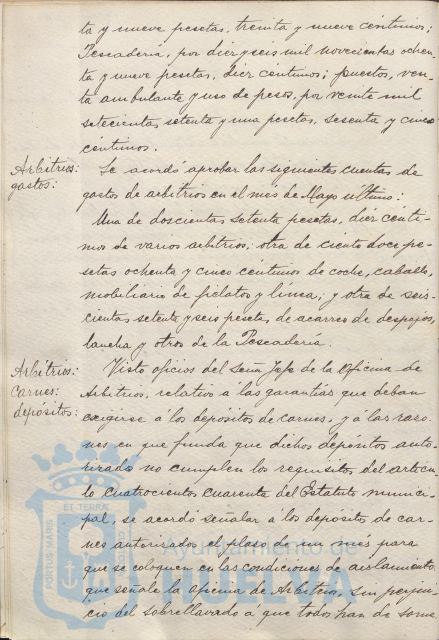 ta y nueve pesetas, treinta y nueve céntimos;
Pescadería, por diez y seis mil novecientas ochen-
ta y nueve pesetas, diez céntimos; puestos, ven-
ta ambulante y uso de pesos, por veinte mil
setecientas setenta y una pesetas, sesenta y cinco
céntimos.
Arbitrios:
gastos:
Se acordó aprobar las siguientes cuentas de
gastos de arbitrios en el mes de Mayo último:
Una de doscientas setenta pesetas, diez cénti-
mos de varios arbitrios; otra de ciento doce pe-
setas ochenta y cinco céntimos de coche, caballo,
mobiliario de fielatos y línea; y otra de seis-
cientas setenta y seis pesetas de acarreo de despojos,
lancha y otros de la Pescadería.
Arbitrios:
Carnes:
depósitos:
Visto oficios del Señor Jefe de la Oficina de
Arbitrios, relativo a las garantías que deban
exigirse a los depósitos de carnes, y a las razo-
nes en que funda que dichos depósitos auto-
rizados no cumplen los requisitos del artícu-
lo cuatrocientos cuarenta del Estatuto munici-
pal, se acordó señalar a los depósitos de car-
nes autorizados el plazo de un mes para
que se coloquen en las condiciones de aislamiento
que señale la oficina de Arbitrios, sin perjui-
cio del sobrellavado a que todos han de some
ET TERRA
PORTUS MARIS
Ayuntamiento de
HUELVA